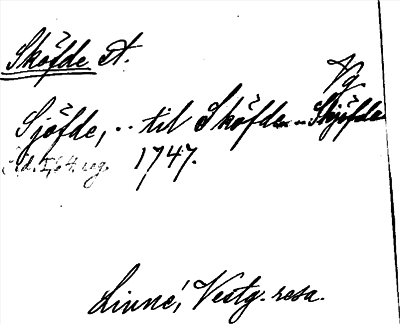 Sköfde st.
Vg
Sjöfde, .. til Sköfde .. Skjöfde
1747.
Linné, Vestg. resa.